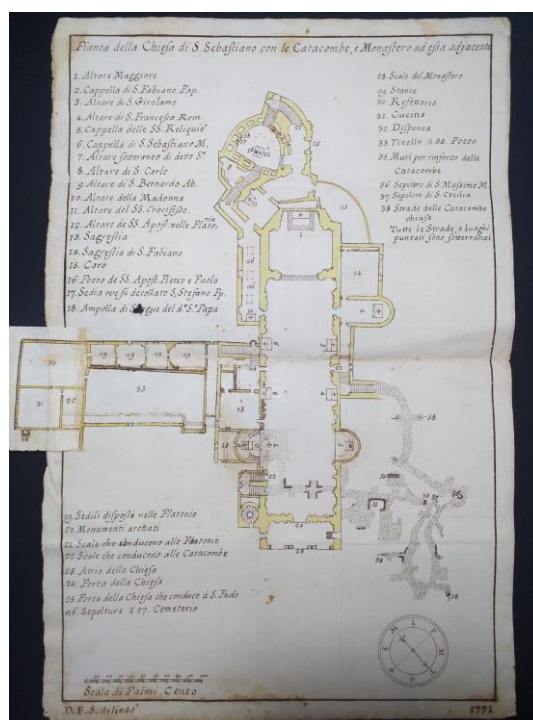 Pianta della Chiesa di S. Sebastiano con le Catacombe, e Monastero ad essa adjacente
1. Altare Maggiore
2. Cappella di S. Fabiano Pap.
3. Altare di S. Girolamo
4. Altare di S. Francesca Rom.
5. Cappella delle SS. Reliquie
6. Cappella di S. Sebastiano M.
7. Altare soteraneo di detto S.º
8. Altare di S. Carlo
9. Altare di S. Bernardo Ab.
10. Altare della Madonna
11. Altare del SS. Crocifisso
12. Altare de SS. Apost. nelle Plato.nie
13. Sagrestia
14. Sagrestia di S. Fabiano
15. Coro
16. Pozzo de SS. Apost. Pietro e Paolo
17. Sedia ove fu decollato S. Stefano Pp.
18. Ampolla di Sangue del d.º S.º Papa
28. Scale del Monastero
29. Stanze
30. Refettorio
31. Cucina
32. Dispensa
33. Tinello il 34. Pozzo
35. Muri per rinforzo delle
Catacombe
36. Sepolcro di S. Massimo M.
37. Sepolcro di S. Cecilia
38. Strade delle Catacombe
chiuse
Tutte le Strade, e luoghi
puntati sono sotterranei
19. Sedili disposti nelle Platonie
20. Monumenti archati
21. Scale che conducono alle Platonie
22. Scale che conducono alle Catacombe
23. Atrio della Chiesa
24. Porta della Chiesa
25. Porta della Chiesa che conduce à S. Paolo
26. Sepolture è 27. Cemeterio
Scala di Palmi Cento
D. F. S. delineò
1771